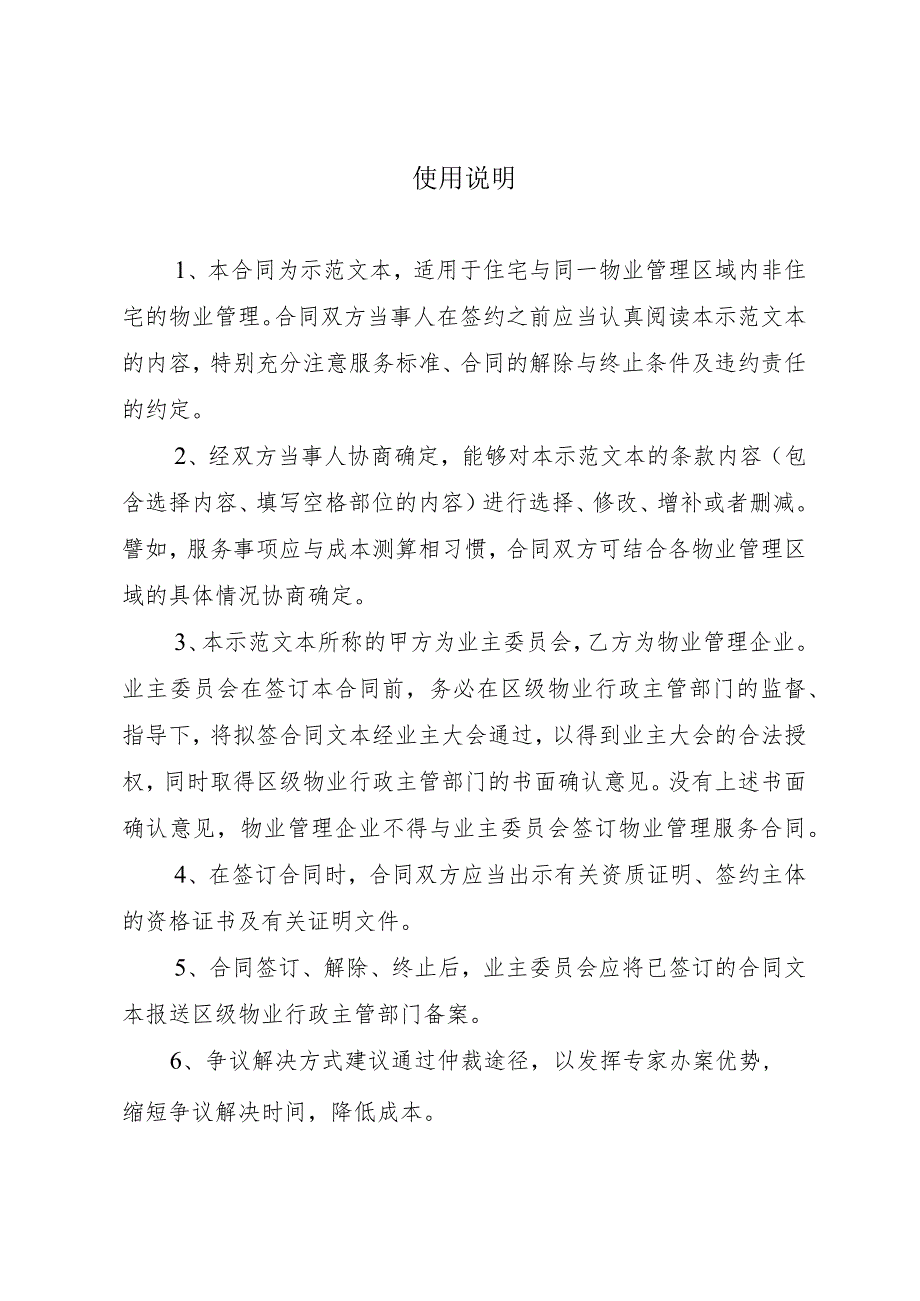 使用说明
1、本合同为示范文本，适用于住宅与同一物业管理区域内非住
宅的物业管理。合同双方当事人在签约之前应当认真阅读本示范文本
的内容，特别充分注意服务标准、合同的解除与终止条件及违约责任
的约定。
2、经双方当事人协商确定，能够对本示范文本的条款内容（包
含选择内容、填写空格部位的内容）进行选择、修改、增补或者删减。
譬如，服务事项应与成本测算相习惯，合同双方可结合各物业管理区
域的具体情况协商确定。
3、本示范文本所称的甲方为业主委员会，乙方为物业管理企业。
业主委员会在签订本合同前，务必在区级物业行政主管部门的监督、
指导下，将拟签合同文本经业主大会通过，以得到业主大会的合法授
权，同时取得区级物业行政主管部门的书面确认意见。没有上述书面
确认意见，物业管理企业不得与业主委员会签订物业管理服务合同。
4、在签订合同时，合同双方应当出示有关资质证明、签约主体
的资格证书及有关证明文件。
5、合同签订、解除、终止后，业主委员会应将已签订的合同文
本报送区级物业行政主管部门备案。
6、争议解决方式建议通过仲裁途径，以发挥专家办案优势，
缩短争议解决时间，降低成本。